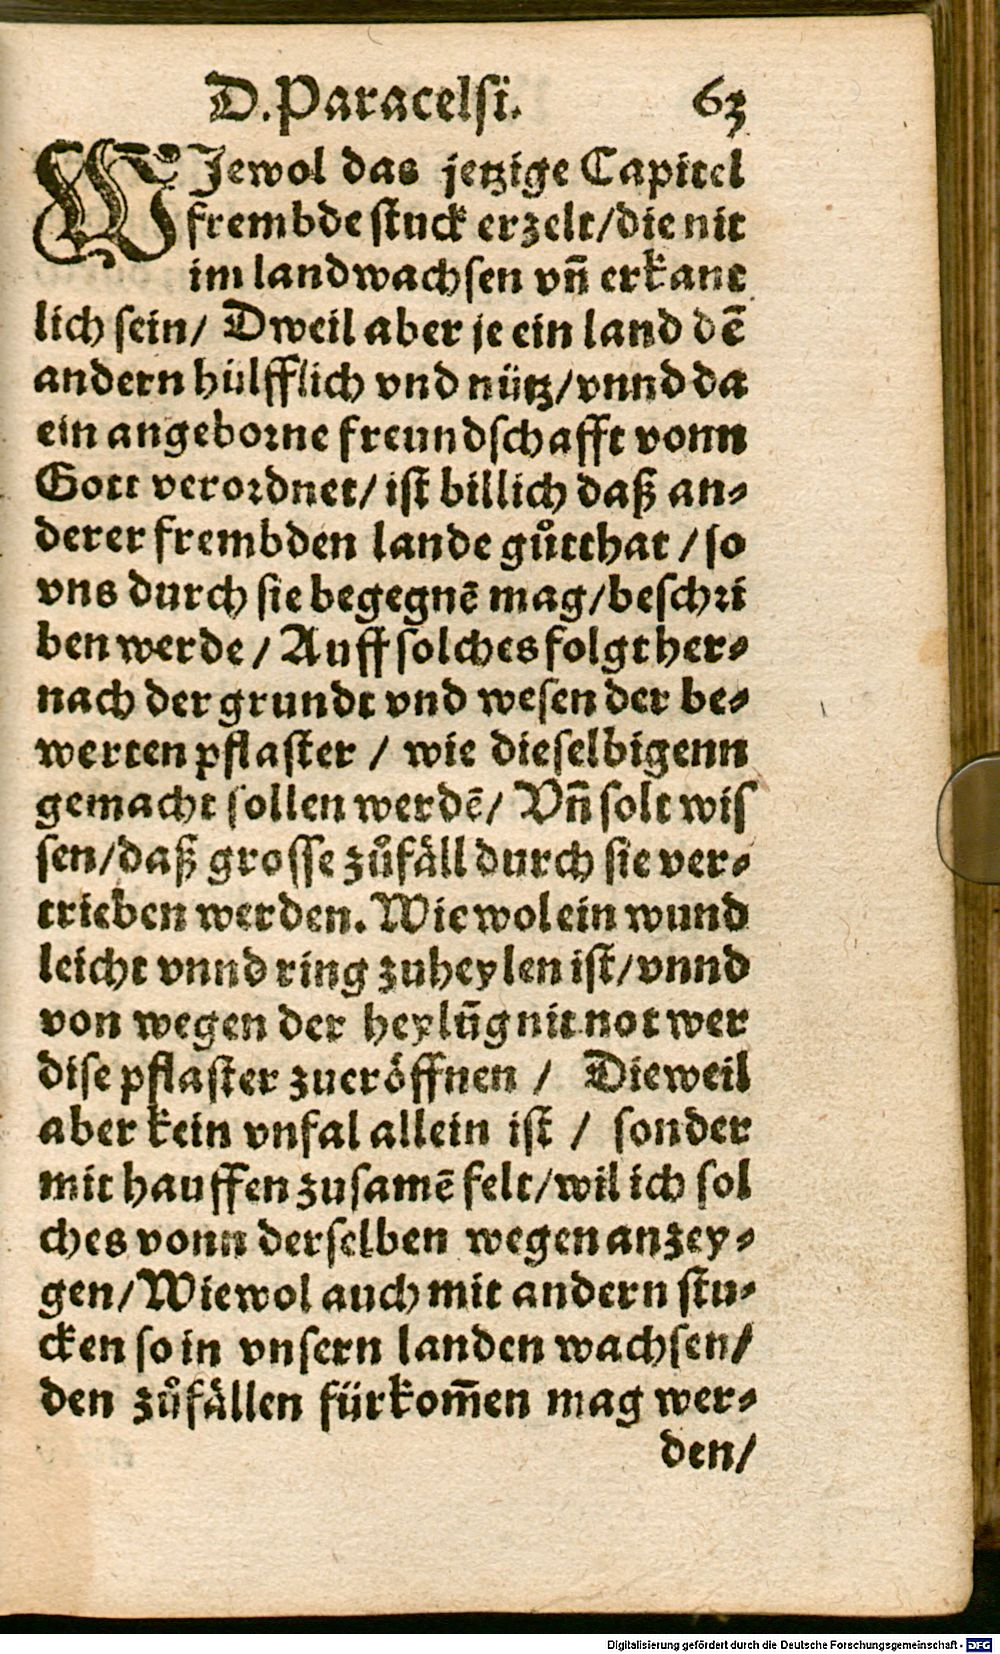 D. Paracelsi. 63
WJewol das jetzige Capitel
frembde stuck erzelt/die nit
im land wachsen vn̄ erkant
lich sein/ Dweil aber je ein land dē
andern hülfflich vnd nütz/vnnd da
ein angeborne freundschafft vonn
Gott verordnet/ ist billich daß an-
derer frembden lande gůtthat / so
vns durch sie begegnē mag/beschri
ben werde / Auff solches folgt her-
nach der grundt vnd wesen der be-
werten pflaster / wie dieselbigenn
gemacht sollen werdē/ Vn̄ solt wis
sen/daß grosse zůfäll durch sie ver-
trieben werden. Wiewol ein wund
leicht vnnd ring zuheylen ist/vnnd
von wegen der heylūg nit not wer
dise pflaster zueröffnen / Dieweil
aber kein vnfal allein ist / sonder
mit hauffen zusamē felt/wil ich sol
ches vonn derselben wegen anzey-
gen/Wiewol auch mit andern stu-
cken so in vnsern landen wachsen/
den zůfällen fürkom̄en mag wer-
den/
Digitalisierung gefördert durch die Deutsche Forschungsgemeinschaft - DFG